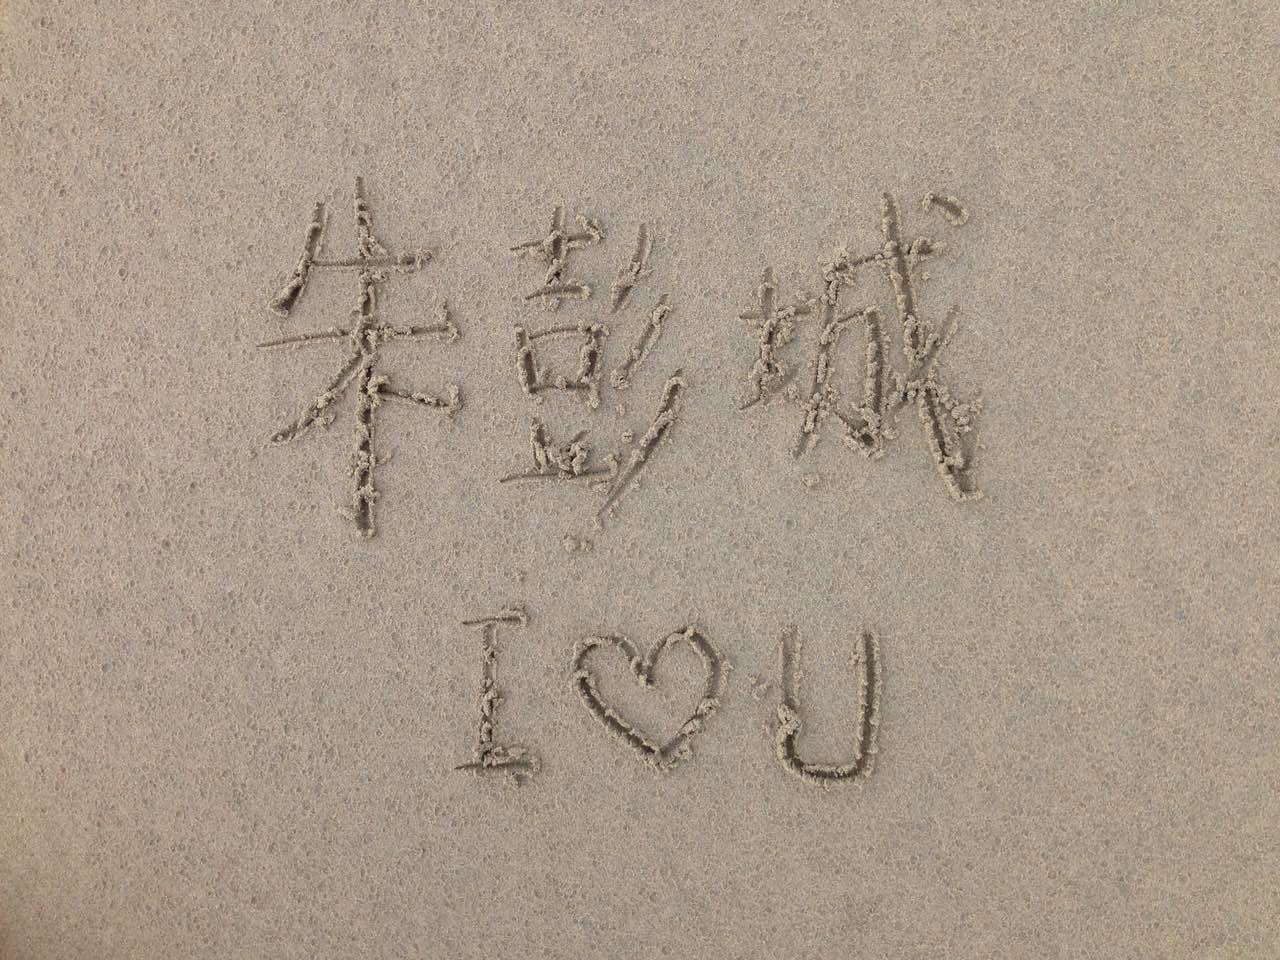 朱彭城
I♡U